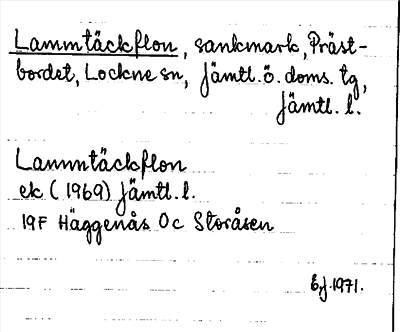 Lammtäckflon, sankmark, Präst-
bordet, Lockne sn, Jämtl. ö. doms. tg,
Jämtl. l.
Lammtäckflon
ek (1969) Jämtl. l.
19F Häggenås Oc Storåsen
1971.